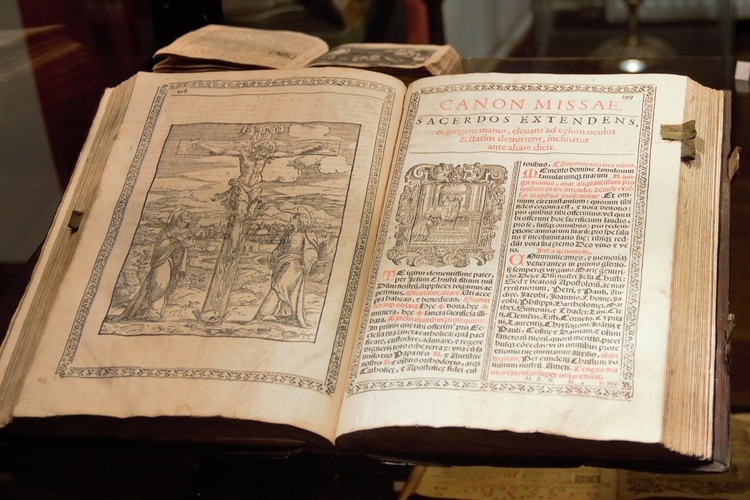 298
299
CANON MISSAE.
SACERDOS EXTENDENS,
& iungens manus, eleuans ad cœlum oculos
& statim demittens, inclinatus
ante altare dicit.
TE igitur clementissime pater,
per Iesum Christū filium tuū
Dñm nostrū, supplices rogamus ac
petimus,
hæc ✠ dona, hæc ✠
munera, hæc ✠ sancta sacrificia illi-
bata. Extensis manibus prosequitur.
In primis que tibi offerim' pro Ec-
clesia tua sancta catholica: quā paci-
ficare, custodire, adunare, & regere
digneris toto orbe terrarū: vna cū fa-
mulo tuo Papa nr̄o N. & Antistite
nostro N. & omnibus orthodoxis, atq;
Catholicæ, & Apostolicæ fidei cul
toribus. Commemoratio pro viuis.
MEmento domine famulorum
famularumq; tuarum N.
Et om-
nium circunstantium: quorum tibi
fides cognita est, & nota deuotio:
pro quibus tibi offerimus: vel qui ti
bi offerunt hoc sacrificium laudis,
pro se, suisq; omnibus: pro redem-
ptione animarum suarū: pro spe salu
tis et incolumitatis suę: tibiq; red-
dūt vota sua ęterno Deo viuo & ve-
ro. Infra actionem.
COmmunicantes, & memoriā
venerantes in primis glorio-
sę semperq; virginis Marię genitri-
cis Dei & Dñi nostri Iesu Christi:
Sed & beatorū Apostolorū, ac mar
tyrū tuorum, Petri, & Pauli, An-
dreę, Iacobi, Ioannis, Thomę, Ia-
cobi, Philippi, Bartholomęi, Mat-
thęi, Simonis & Thadęi: Lini, Cle-
ti, Clemētis, Xysti, Cornelij, Cypria
ni, Laurentij, Chrysogoni, Ioānis &
Pauli, Cosmę & Damiani, et omniū
sanctorū tuorū: quorū meritis, preci
busq; cōcedas: vt in omnibus prote-
ctionis tuę muniamur auxilio,
Per eundem Christum do-
minum nostrum. Amen.